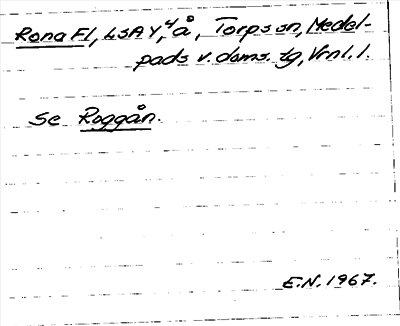 Rona Fl, LSA Y,4 å, Torps sn, Medel-
pads v. doms. tg, Vrnl. l.
Se Roggån.
E.N. 1967.